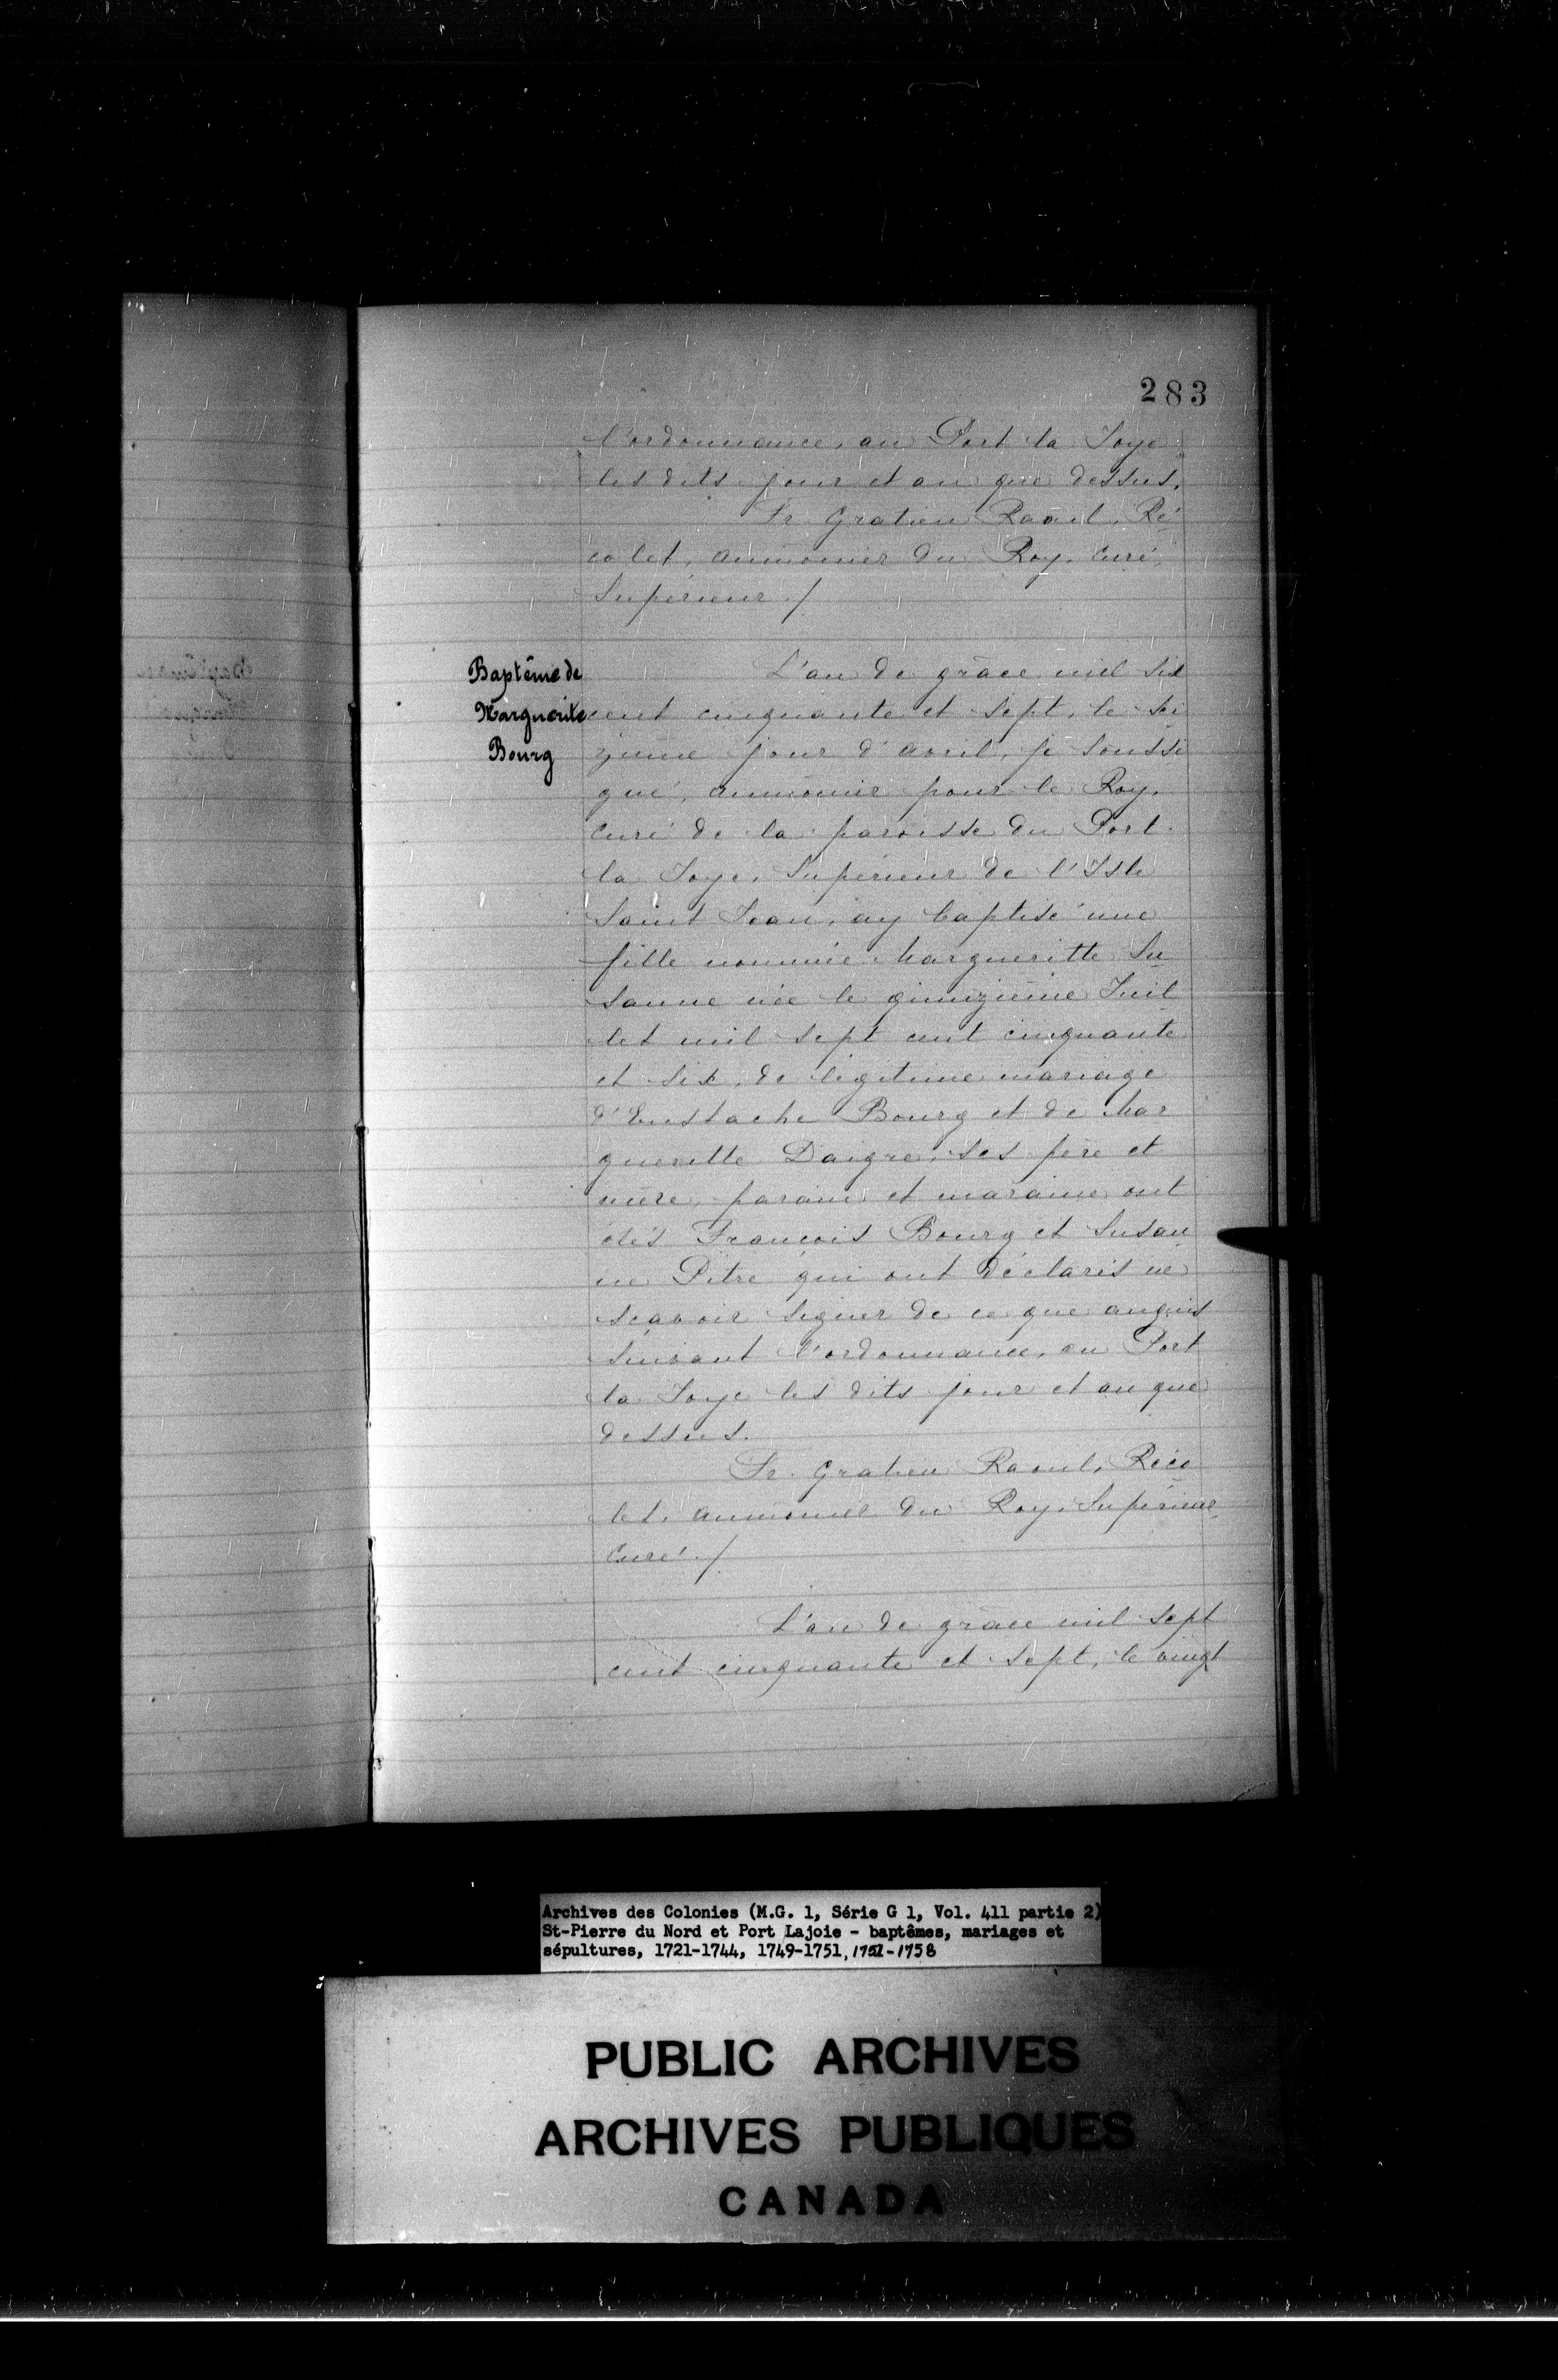 283
l'ordonnance, au Port la Joye
les dits jour et an que dessus.
Fr. Gratien Raoul, Ré
colet, aumônier du Roy, Curé,
Supérieur /
Baptême de
Marguerite
Bourg
L'an de grâce mil six
cent cinquante et sept, le sei
zième jour d'avril, je soussi
gné, aumônier pour le Roy,
curé de la paroisse du Port
la Joye, Supérieur de l'Isle
Saint Jean, ay baptisé une
fille nommée Margueritte Su
sanne née le quinzième Juil
let mil sept cent cinquante
et six, de légitime mariage
d'Eustache Bourg et de Mar
gueritte Daigre, ses père et
mère, parain et maraine ont
étés François Bourg et Susan
ne Pitre qui ont déclarés ne
sçavoir signer de ce que anquis
suivant l'ordonnance, au Port
la Joye les dits jour et an que
dessus.
Fr. Gratien Raoul, Réco
let, aumônier du Roy, Supérieur,
Curé /
L'an de grâce mil sept
cent cinquante et sept, le vingt
Archives des Colonies (M.G. 1, Série G 1, Vol. 411 partie 2)
St-Pierre du Nord et Port Lajoie - baptêmes, mariages et
sépultures, 1721-1744, 1749-1751, 1751-1758
PUBLIC ARCHIVES
ARCHIVES PUBLIQUES
CANADA